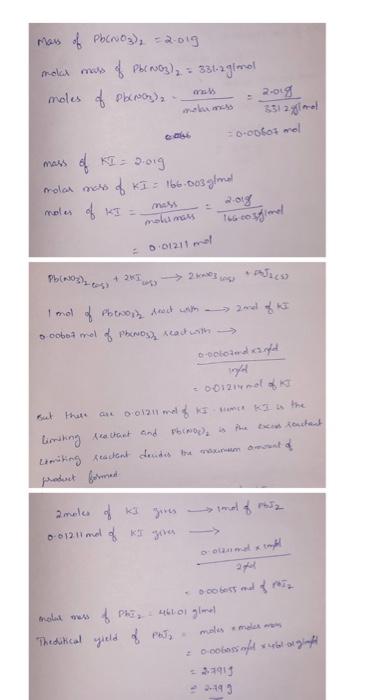 Mass of Pb(NO3)2 = 2.01g
molar mass of Pb(NO3)2 = 331.2g/mol
moles of Pb(NO3)2 = mass / molar mass = 2.01g / 331.2g/mol
= 0.00607 mol
mass of KI = 2.01g
molar mass of KI = 166.003g/mol
moles of KI = mass / molar mass = 2.01g / 166.003g/mol
= 0.01211 mol
Pb(NO3)2(aq) + 2KI(aq) → 2KNO3(aq) + PbI2(s)
1 mol of Pb(NO3)2 react with → 2mol of KI
0.00607 mol of Pb(NO3)2 react with →
0.00607mol x 2mol
1mol
= 0.01214 mol of KI
But there are 0.01211 mol of KI. Hence KI is the
limiting reactant and Pb(NO3)2 is the excess reactant
Limiting reactant decides the maximum amount of
product formed
2moles of KI gives → 1mol of PbI2
0.01211 mol of KI gives →
0.01211mol x 1mol
2mol
= 0.006055 mol of PbI2
molar mass of PbI2 = 461.01 g/mol
Theoretical yield of PbI2 = moles x molar mass
= 0.006055 mol x 461.01 g/mol
= 2.791g
= 2.79g